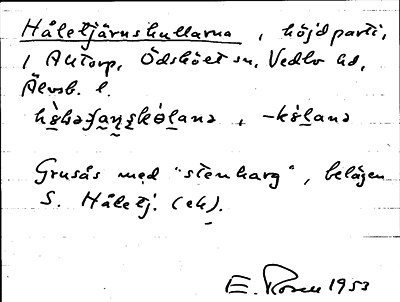 Håletjärnskullarna, höjdparti,
i Autorp, Ödskölt sn, Vedbo hd,
Älvsb. l.
-kö̀lanə
Grusås med "stenharg", belägen
S. Håletj. (ek).
E. Rosen 1953